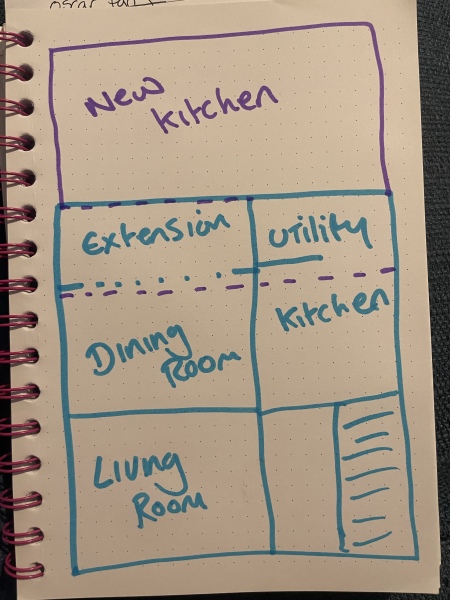 New
Kitchen
Extension
Utility
Kitchen
Dining
Room
Living
Room